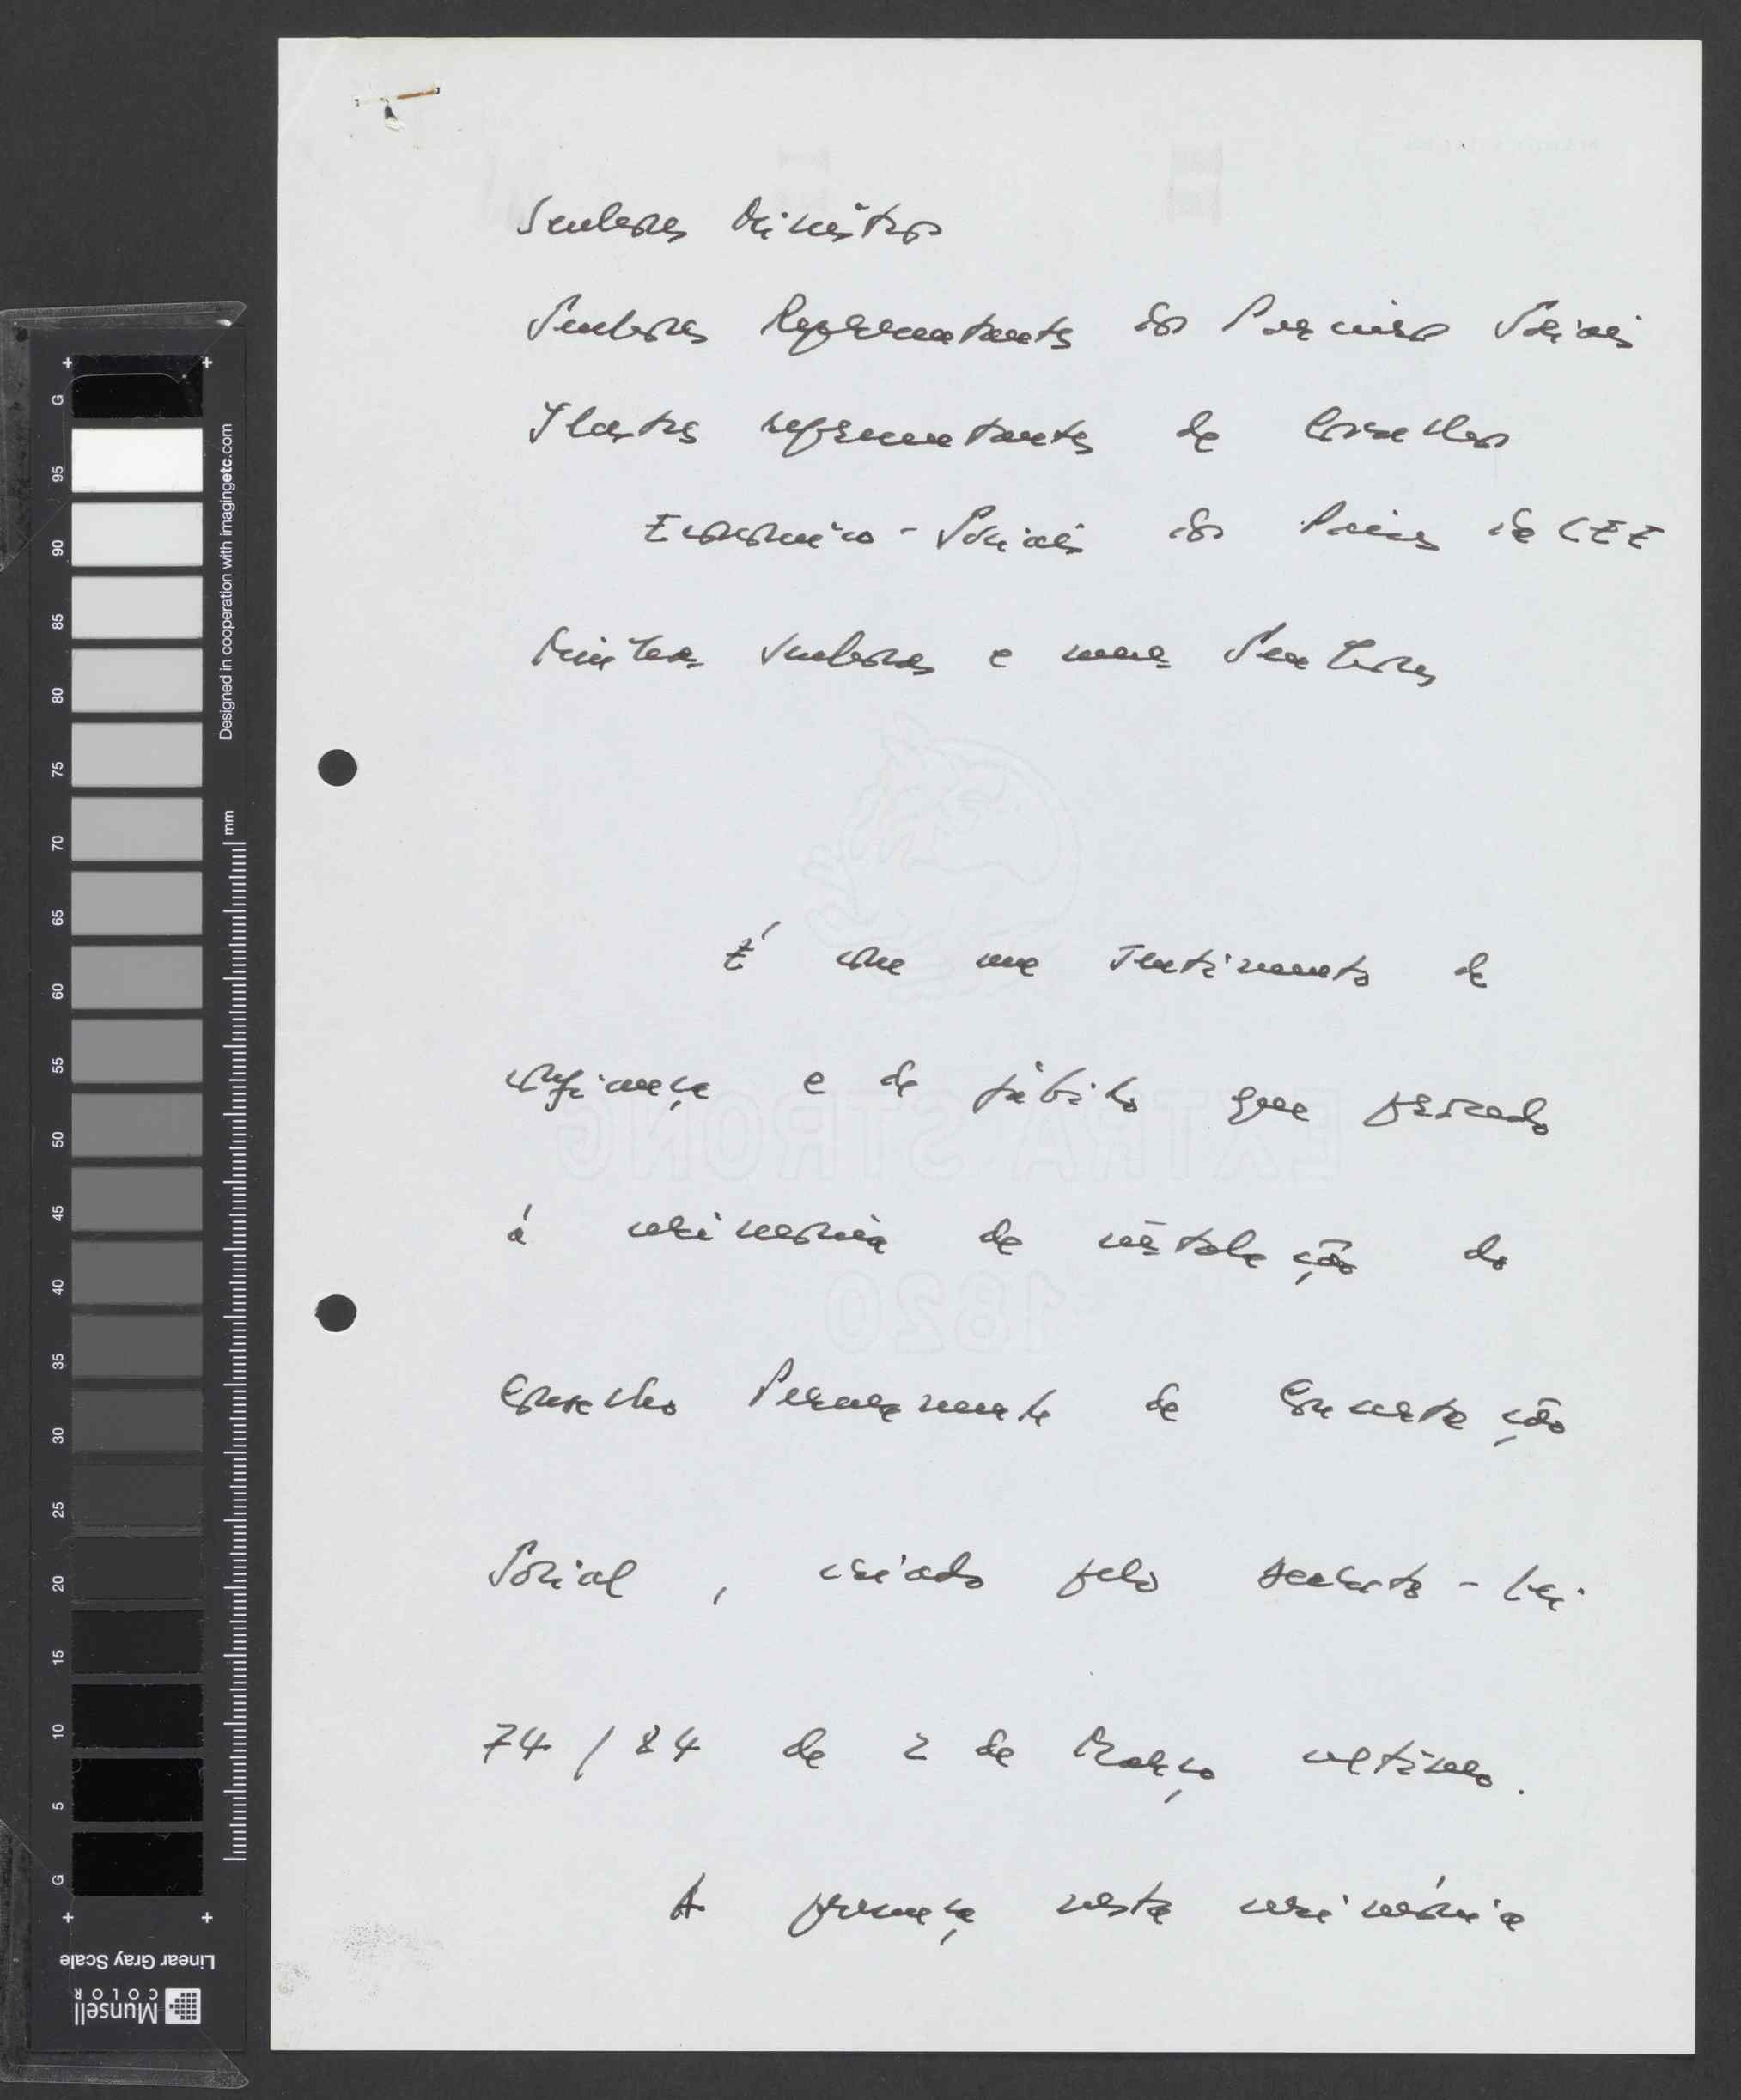 Senhores Ministros
Senhores Representantes dos Parceiros Sociais
Ilustres representantes de Conselhos
Económico-Sociais dos Países da CEE
Minhas Senhoras e meus Senhores
É com um sentimento de
confiança e de júbilo que presido
á cerimónia de instalação do
Conselho Permanente de Concertação
Social, criado pelo decreto-lei
74/84 de 2 de Março último.
A presença nesta cerimónia
EXTRA STRONG
1820
Designed in cooperation with imagingetc.com
mm
G 95 90 85 80 75 70 65 60 55 50 45 40 35 30 25 20 15 10 5 G
Linear Gray Scale
Munsell
COLOR